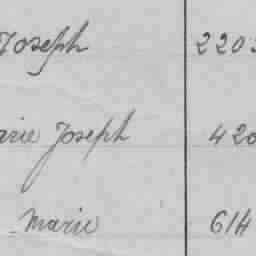 Joseph 220
Joseph 420
Marie 614